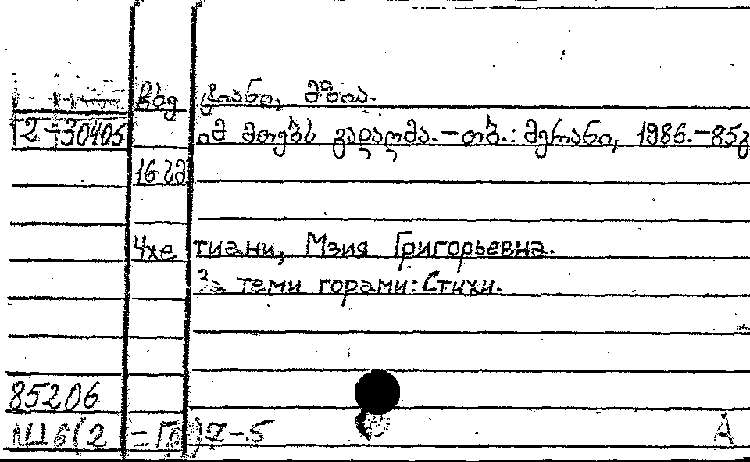 ჩხე ტიანი, მზია.
12-30405 იმ მთებს გადაღმა.-თბ.: მერანი, 1986.-85გ
16 სმ
Чхе тиани, Мзия Григорьевна.
За теми горами: Стихи.
85206
Ш6(2=Гр)7-5 А